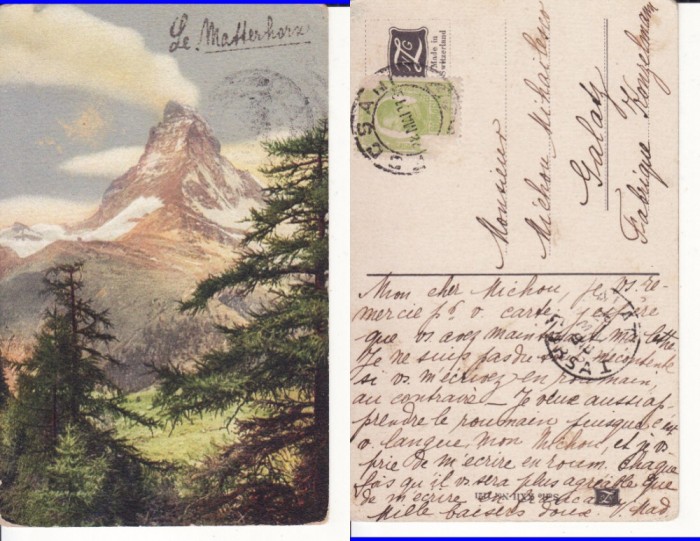 Le Matterhorn
Made in
Switzerland
Monsieur
Michou Mihailesco
Galatz
Fabrique
Mon cher Michou, je vs. re-
mercie pr. v. carte, j'espère
que vs avez maintenant ma lettre
Je ne suis pas du mécontente
si vs. m'écrivez en roumain,
au contraire – Je veux aussi ap
prendre le roumain puisque c'est
v. langue, mon Michou, et je vs
prie de m'ecrire en roum. chaque
fois qu'il vs sera plus agréable que
de m'ecrire
Mille baisers doux. Mad